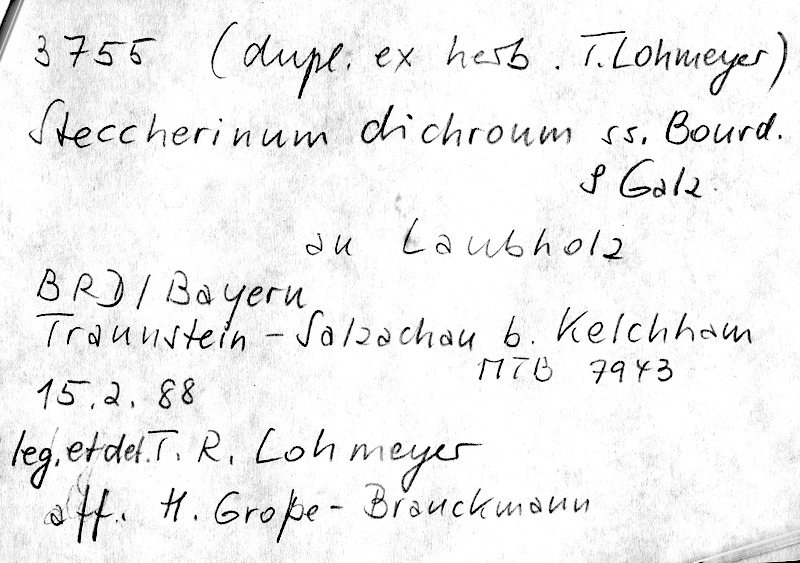 3755 (dupl. ex herb. T. Lohmeyer)
Steccherinum dichroum ss. Bourd.
& Galz.
an Laubholz
BRD / Bayern
Traunstein - Salzachau b. Kelchham
MTB 7943
15.2.88
leg. et det. T. R. Lohmeyer
aff. H. Große-Brauckmann